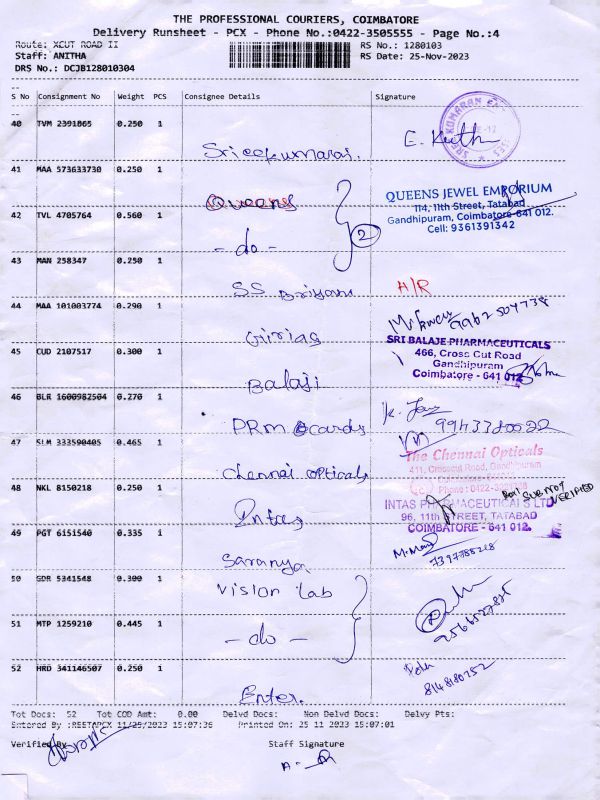 THE PROFESSIONAL COURIERS, COIMBATORE
Delivery Runsheet - PCX - Phone No.:0422-3505555 - Page No.:4
Route: XCUT ROAD II
RS No.: 1280103
Staff: ANITHA
RS Date: 25-Nov-2023
DRS No.: DCJB128010304
S No Consignment No Weight PCS Consignee Details Signature
40 TVM 2391865 0.250 1
Sreekumaras. E. Keith
41 MAA 573633730 0.250 1
Queens
QUEENS JEWEL EMPORIUM
114, 11th Street, Tatabad
Gandhipuram, Coimbatore-641 012.
Cell: 9361391342
42 TVL 4705764 0.560 1
- do - 2
43 MAN 258347 0.250 1
SS Briyani H/R
44 MAA 101003774 0.290 1
Girias 9962504738
45 CUD 2107517 0.300 1
Balaji
SRI BALAJE PHARMACEUTICALS
466, Cross Cut Road
Gandhipuram
Coimbatore - 641 012
46 BLR 1600982504 0.270 1
PRM cards
47 SLM 333590405 0.465 1
Chennai Opticals
The Chennai Opticals
411, Crosscut Road, Gandhipuram
48 NKL 8150218 0.250 1
Intas
INTAS PHARMACEUTICALS LTD
96, 11th STREET, TATABAD
COIMBATORE - 641 012.
BOX SUB NOT VERIFIED
49 PGT 6151540 0.335 1
Saranya 7397788228
50 GDR 5341548 0.300 1
Vision Lab
51 MTP 1259210 0.445 1
- do -
52 HRD 341146507 0.250 1
Enter. 8148180252
Tot Docs: 52 Tot COD Amt: 0.00 Delvd Docs: Non Delvd Docs: Delvy Pts:
Entered By :REETAPCX 11/25/2023 15:07:36 Printed On: 25 11 2023 15:07:01
Verified By Staff Signature